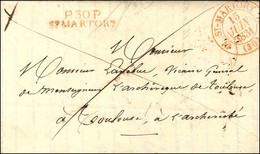 P.30.P
ST MARTORY
ST-MARTORY (30)
15
JUIN
Monsieur
Monsieur Vicaire Général
de Monseigneur l'archevêque de Toulouse,
à Toulouse, à l'archevêché